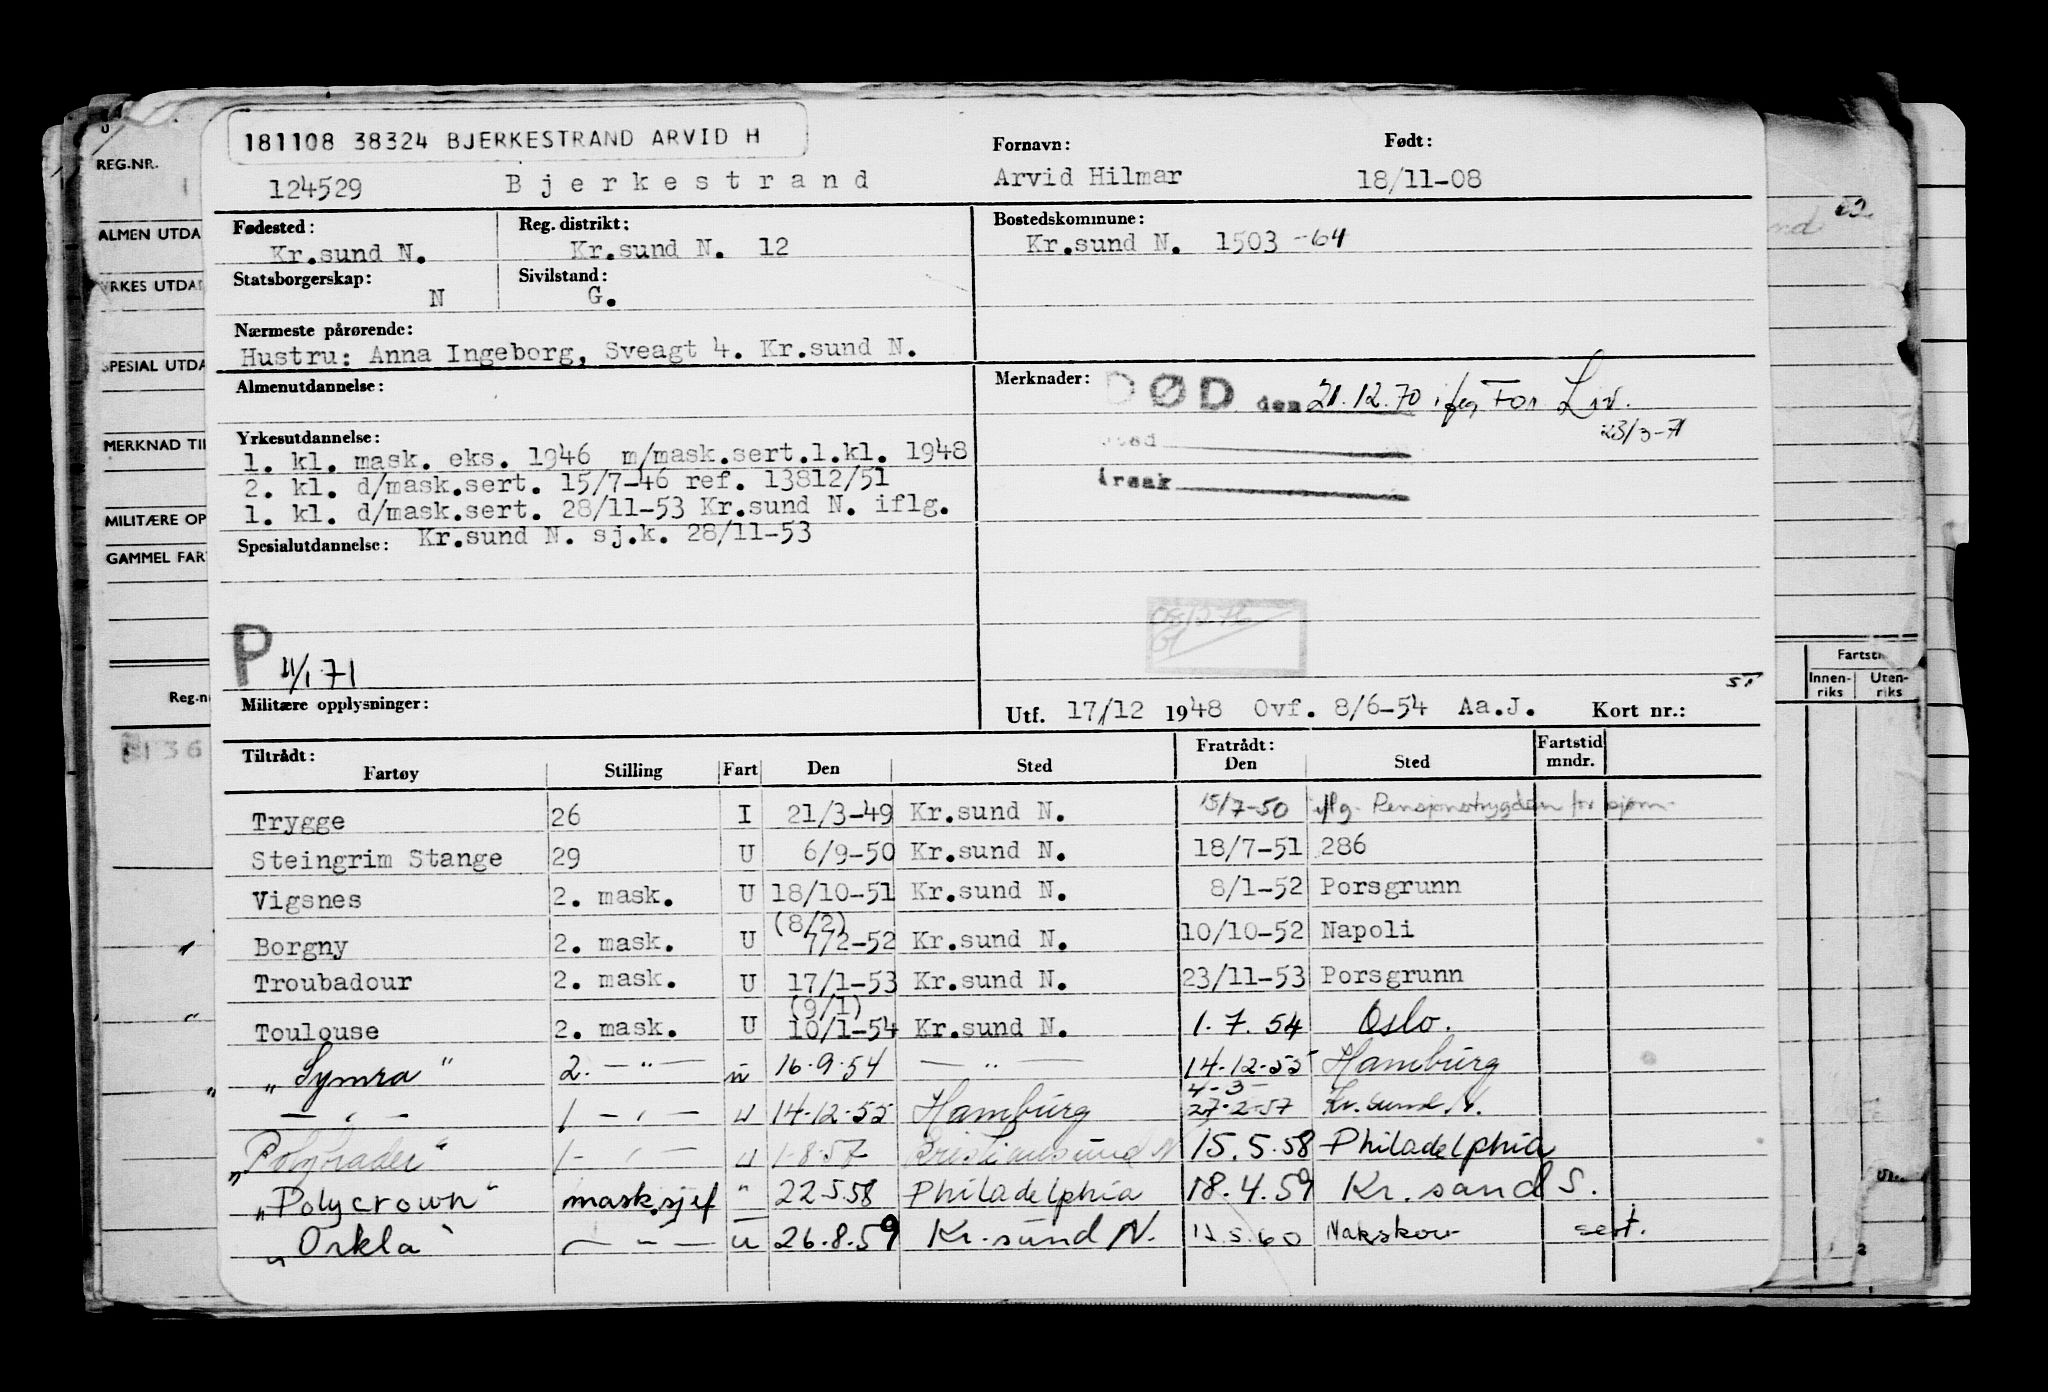 181108 38324 BJERKESTRAND ARVID H
Fornavn: Født:
124529 Bjerkestrand Arvid Hilmar 18/11-08
Fødested: Reg. distrikt: Bostedskommune:
Kr.sund N. Kr.sund N. 12 Kr.sund N. 1503 -64
Statsborgerskap: Sivilstand:
N G.
Nærmeste pårørende:
Hustru: Anna Ingeborg, Sveagt 4. Kr.sund N.
Almenutdannelse: Merknader: DØD den 21.12.70 ifl
23/3-71
Yrkesutdannelse:
1. kl. mask. eks. 1946 m/mask.sert.1.kl. 1948
2. kl. d/mask.sert. 15/7-46 ref. 13812/51
årsak
1. kl. d/mask.sert. 28/11-53 Kr.sund N. iflg.
Spesialutdannelse: Kr.sund N. sj.k. 28/11-53
P 4/1 71
Militære opplysninger: Utf. 17/12 1948 Ovf. 8/6-54 Aa.J. Kort nr.:
Tiltrådt: Fratrådt: Fartstid
Fartøy Stilling Fart Den Sted Den Sted mndr.
Trygge 26 I 21/3-49 Kr.sund N. 15/7-50 iflg. Pensjonstrygden for sjøm.
Steingrim Stange 29 U 6/9-50 Kr.sund N. 18/7-51 286
Vigsnes 2. mask. U 18/10-51 Kr.sund N. 8/1-52 Porsgrunn
(8/2)
Borgny 2. mask. U 7/2-52 Kr.sund N. 10/10-52 Napoli
Troubadour 2. mask. U 17/1-53 Kr.sund N. 23/11-53 Porsgrunn
(9/1)
Toulouse 2. mask. U 10/1-54 Kr.sund N. 1.7.54 Oslo.
"Symra" 2. —"— u 16.9.54 —"— 14-12-55 Hamburg
4-3-
—"— 1 —"— u 14-12-55 Hamburg 27-2-57 Kr.sund.N.
"Polytrader" 1- —"— u 1-8-57 Kristiansund N 15.5.58 Philadelphia
"Polycrown" mask.sjef " 22.5.58 Philadelphia 18.4.59 Kr.sand S.
"Orkla" —"— u 26.8.59 Kr.sund N. Nakskov sert.
REG.NR.
ALMEN UTDA
YRKES UTDA
SPESIAL UTDA
MERKNAD TIL
MILITÆRE OP
GAMMEL FART
Reg.n
Fartst
Innen-riks Uten-riks